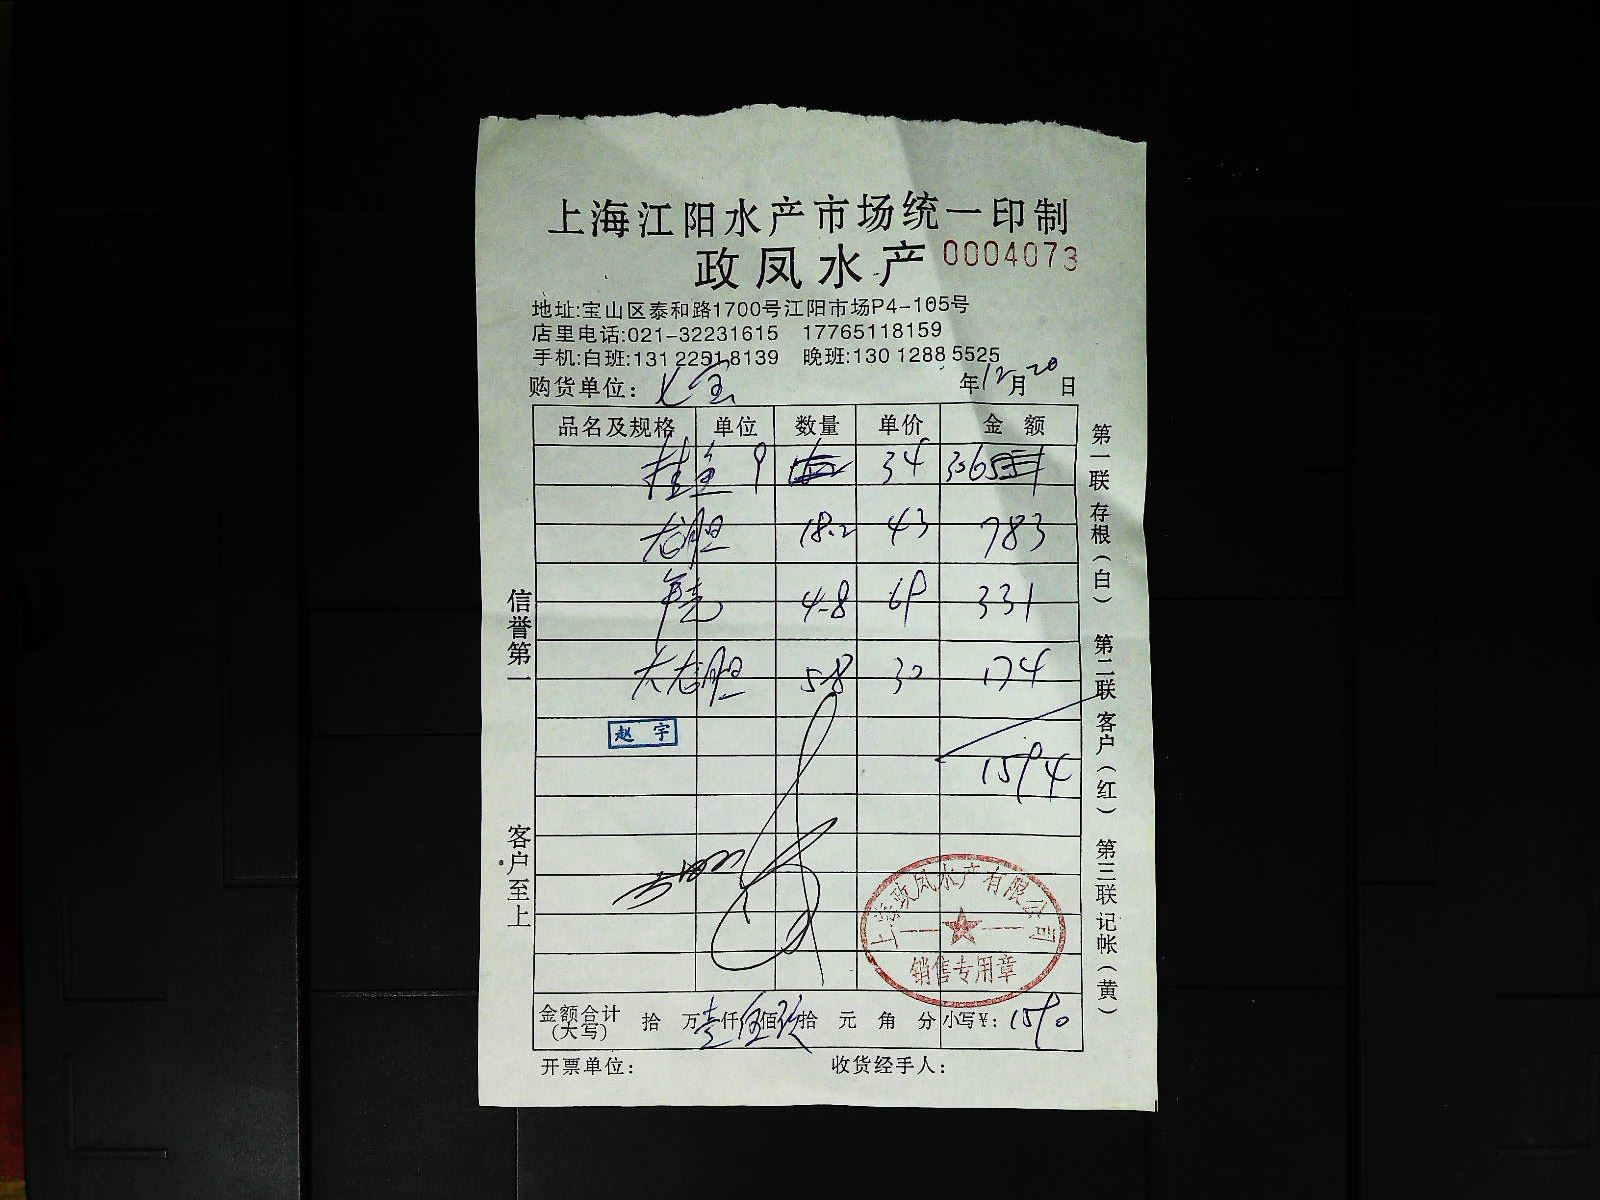 上海江阳水产市场统一印制
政凤水产 0004073
地址:宝山区泰和路1700号江阳市场P4-105号
店里电话:021-32231615 17765118159
手机:白班:131 2251 8139 晚班:130 1288 5525
购货单位: 年12月20日
品名及规格 单位 数量 单价 金额
桂鱼 9 34 306
龙胆 18.2 43 783
4.8 69 331
大龙胆 5.8 30 174
赵宇
1594
上海政凤水产有限公司
销售专用章
金额合计(大写) 拾 万壹仟伍佰玖拾 元 角 分 小写¥: 1590
开票单位: 收货经手人:
信誉第一 客户至上
第一联 存根(白) 第二联 客户(红) 第三联 记帐(黄)